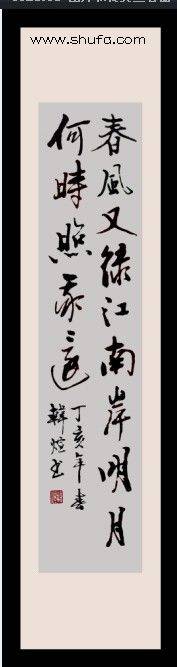 www.shufa.com
春風又绿江南岸明月
何時照我還
丁亥年春
韓煊书